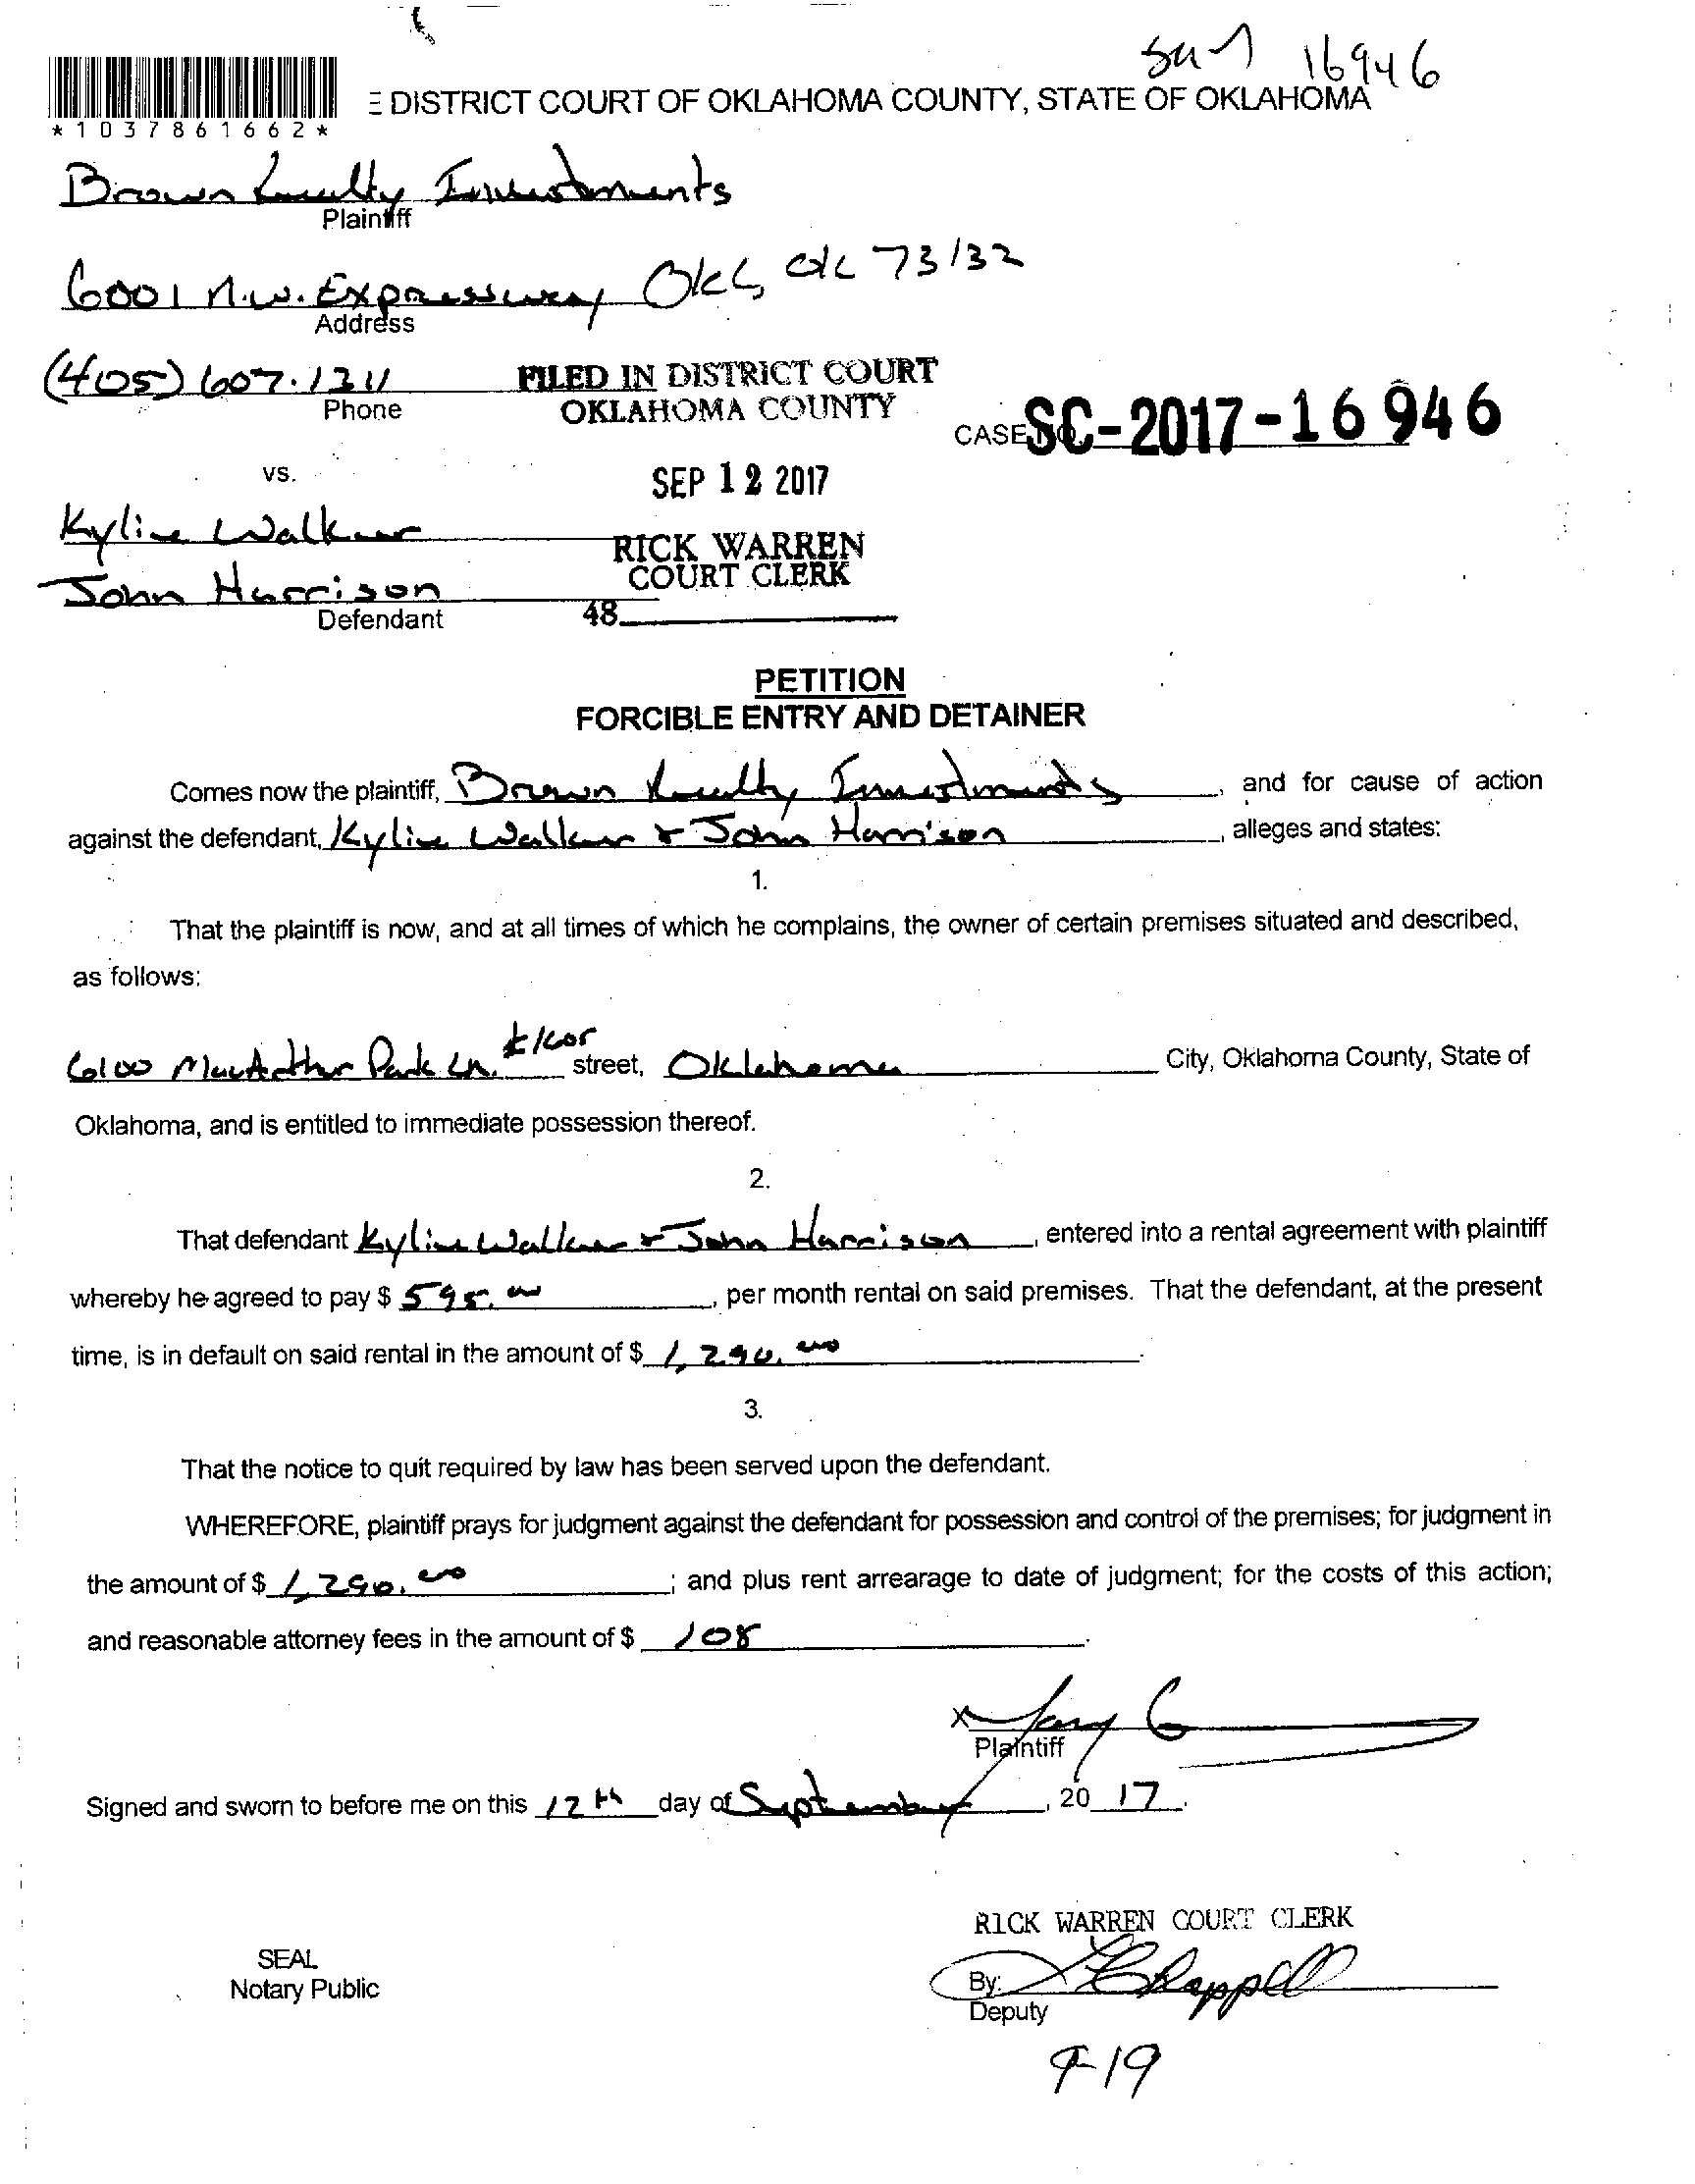 16946
DISTRICT COURT OF OKLAHOMA COUNTY, STATE OF OKLAHOMA
*1037861662*
Brown Realty Investments
Plaintiff
6001 N.W. Expressway OKC, OK 73132
Address
(405) 607.1311
Phone
FILED IN DISTRICT COURT
OKLAHOMA COUNTY
CASE NO. SC-2017-16946
vs.
SEP 12 2017
Kyline Walker
RICK WARREN
COURT CLERK
John Harrison
Defendant
48
PETITION
FORCIBLE ENTRY AND DETAINER
Comes now the plaintiff, Brown Realty Investments, and for cause of action
against the defendant, Kyline Walker & John Harrison, alleges and states:
1.
That the plaintiff is now, and at all times of which he complains, the owner of certain premises situated and described,
as follows:
6100 MacArthur Park Ln. street, Oklahoma City, Oklahoma County, State of
Oklahoma, and is entitled to immediate possession thereof.
2.
That defendant Kyline Walker & John Harrison, entered into a rental agreement with plaintiff
whereby he agreed to pay $ 595.00, per month rental on said premises. That the defendant, at the present
time, is in default on said rental in the amount of $ 1,290.00.
3.
That the notice to quit required by law has been served upon the defendant.
WHEREFORE, plaintiff prays for judgment against the defendant for possession and control of the premises; for judgment in
the amount of $ 1,290.00; and plus rent arrearage to date of judgment; for the costs of this action;
and reasonable attorney fees in the amount of $ 108.
X
Plaintiff
Signed and sworn to before me on this 12th day of September, 20 17.
RICK WARREN COURT CLERK
SEAL
Notary Public
By: Chappell
Deputy
9-19